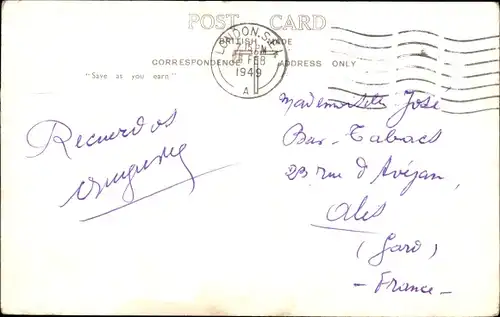 POST CARD
BRITISH MADE
CORRESPONDENCE ADDRESS ONLY
"Save as you earn"
LONDON. S.E.1
FEB
1949
A
Mademoiselle José
Bar-Tabacs
23 rue d'Avéjan
Alès
(Gard)
- France -
Recuerdos